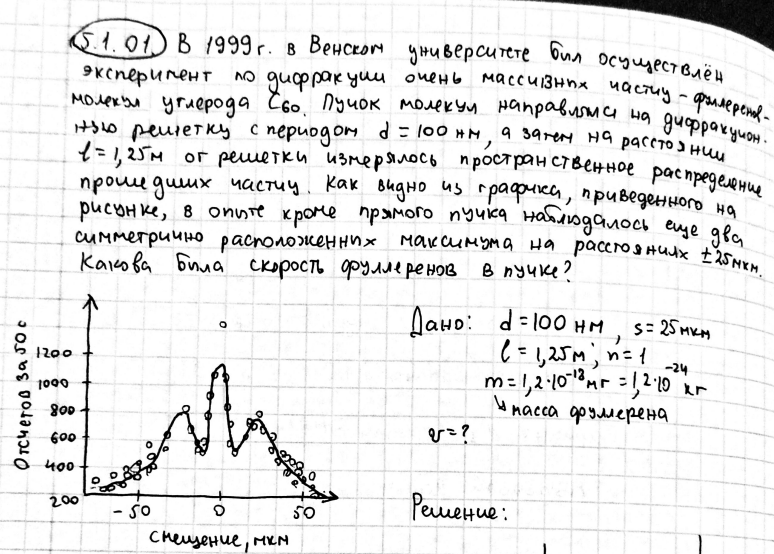 5.1.01. В 1999 г. в Венском университете был осуществлён
эксперимент по дифракции очень массивных частиц - фуллеренов-
молекул углерода C60. Пучок молекул направлялся на дифракцион-
ную решетку с периодом d = 100 нм, а затем на расстоянии
l = 1,25 м от решетки измерялось пространственное распределение
прошедших частиц. Как видно из графика, приведенного на
рисунке, в опыте кроме прямого пучка наблюдалось еще два
симметрично расположенных максимума на расстояниях ±25 мкм.
Какова была скорость фуллеренов в пучке?
Дано: d = 100 нм, s = 25 мкм
l = 1,25 м; n = 1
m = 1,2·10⁻¹⁸ мг = 1,2·10⁻²⁴ кг
масса фуллерена
v = ?
Решение:
Отсчетов за 50 с
1200
1000
800
600
400
200
-50 0 50
Смещение, мкм